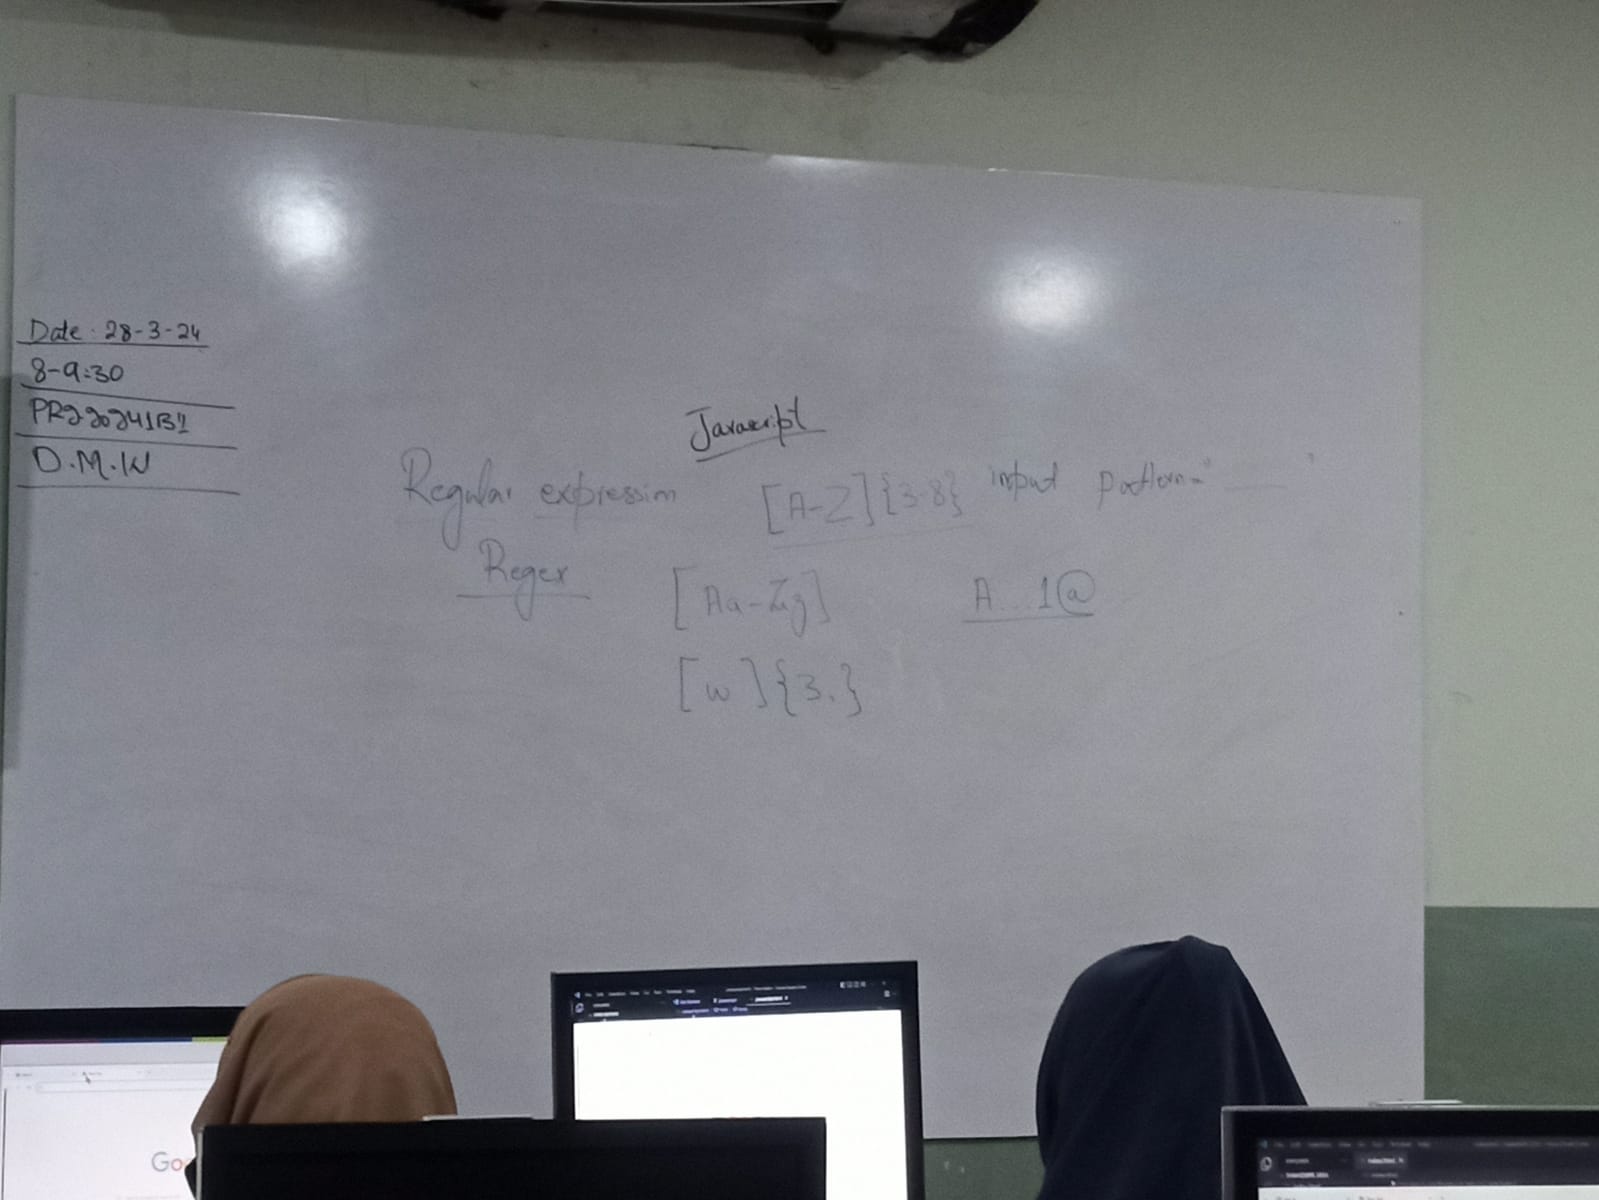 Date: 28-3-24
8-9:30
PR2202241B1
D.M.W
Javascript
Regular expression [A-Z]{3-8} input pattern="____"
Regex [Aa-Zz] A...1@
[w]{3,}
Go